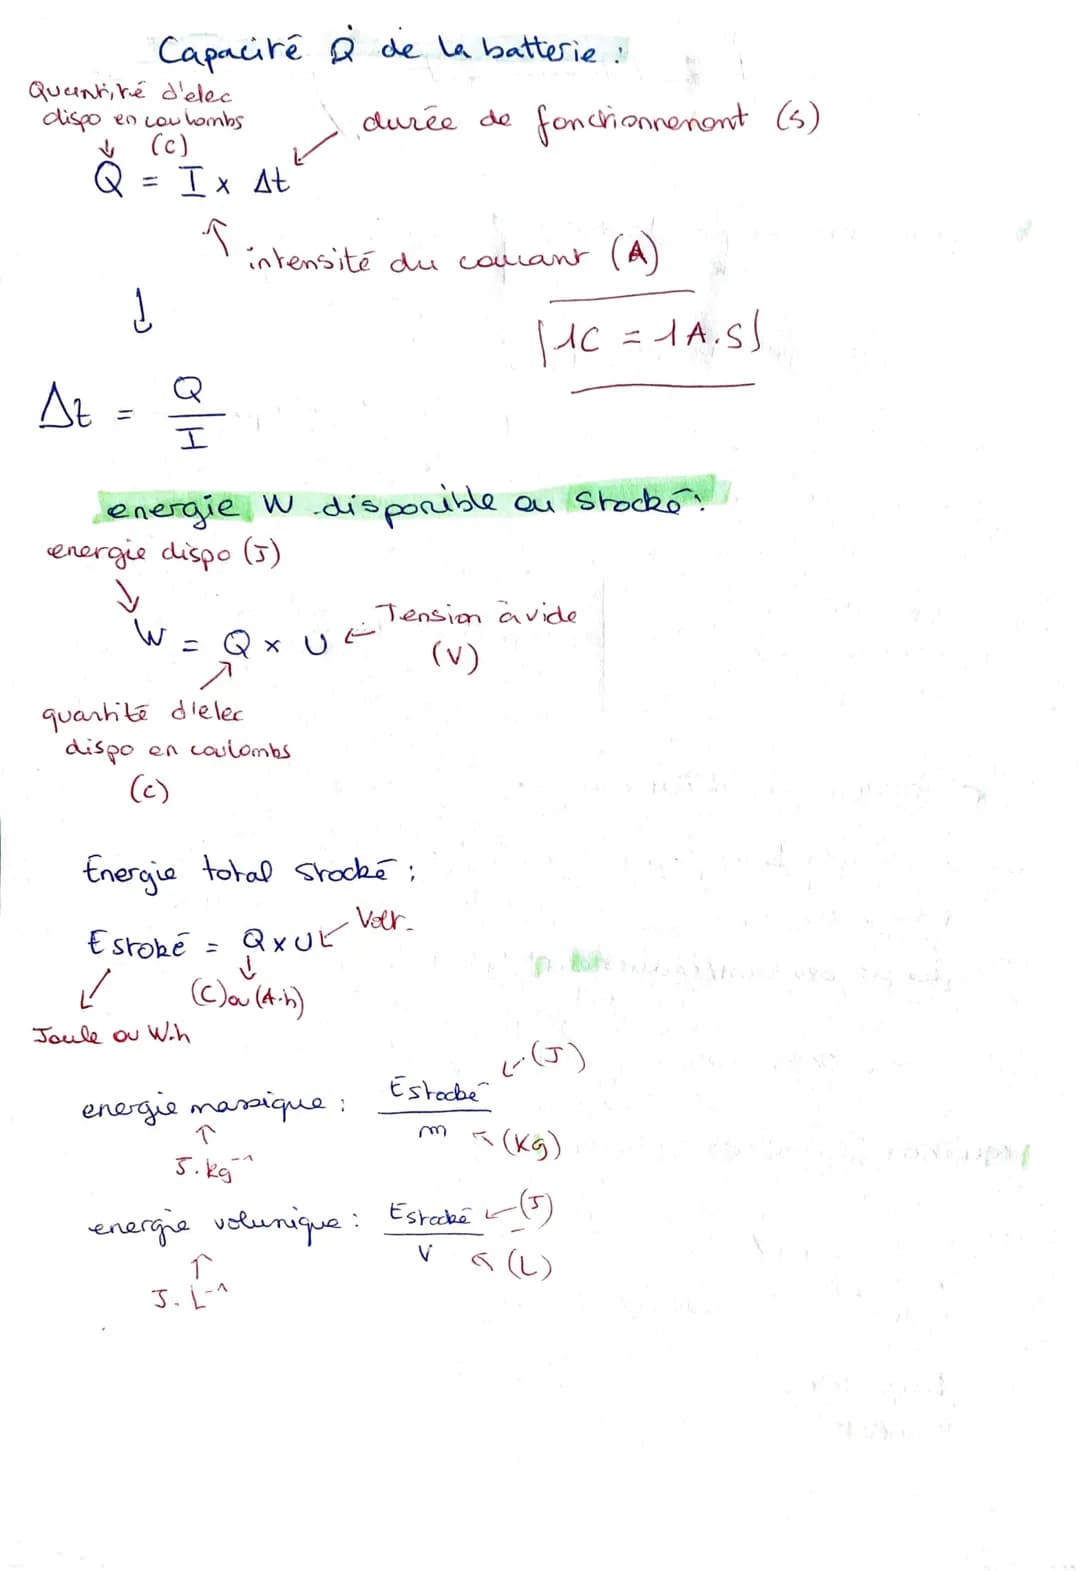 Capacité Q de la batterie :
Quantité d'elec
dispo en coulombs
(C)
durée de fonctionnement (s)
Q = I x Δt
intensité du courant (A)
1C = 1A.S
Δt = Q/I
energie W disponible ou Stocké :
energie dispo (J)
W = Q x U
Tension à vide
(V)
quantité d'elec
dispo en coulombs
(c)
Energie total Stocké :
Volt
E stoké = Q x U
(C) ou (A.h)
Joule ou W.h
energie massique : E stocké / m
(J)
(Kg)
J.kg⁻¹
energie volunique : E stocké / V
(J)
(L)
J.L⁻¹